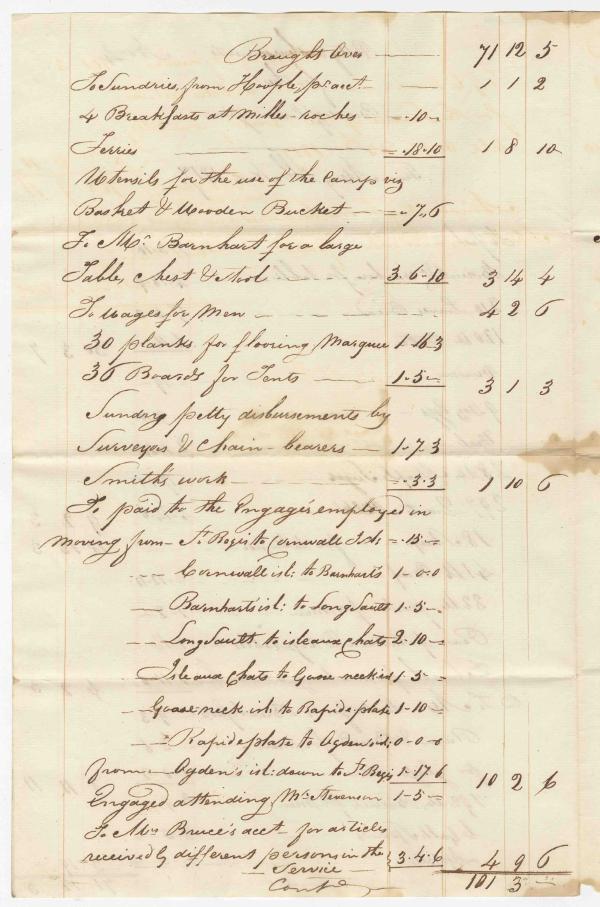 Brought Over — 71 12 5
To Sundries, from Hoople, pr. acct. — 1 1 2
4 Breakfasts at Milles-roches — " 10 "
Ferries — " 18. 10 1 8 10
Utensils for the use of the Camp viz
Basket & Wooden Bucket — " 7. 6
To Mr. Barnhart for a large
Table, Chest & stool — 3. 6. 10 3 14 4
To wages for Men — 4 2 6
30 planks for flooring Marquee 1. 16. 3
36 Boards for Tents — 1. 5. " 3 1 3
Sundry petty disbursements by
Surveyors & Chain-bearers — 1. 7. 3
Smith's work — " 3. 3 1 10 6
To paid to the Engagés employed in
moving from — St. Regis to Cornwall Isld " 15. "
Cornwall isl: to Barnharts 1. 0. 0
— Barnhart's isl: to Long Sault 1. 5. "
— Long Sault to isle aux Chats 2. 10 "
— Isle aux Chats to Goose neck isl 1. 5 "
— Goose neck isl: to Rapide plate 1. 10 "
— Rapide plate to Ogden's isl: 0. 0. 0
from — Ogden's isl: down to St. Regis 1. 17. 6 10 2 6
Engaged attending Mr. Stevenson 1. 5 "
To Mrs Bruce's acct. for articles
received by different persons in the 3. 4. 6 4 9 6
Service — 101 3 "
Contd